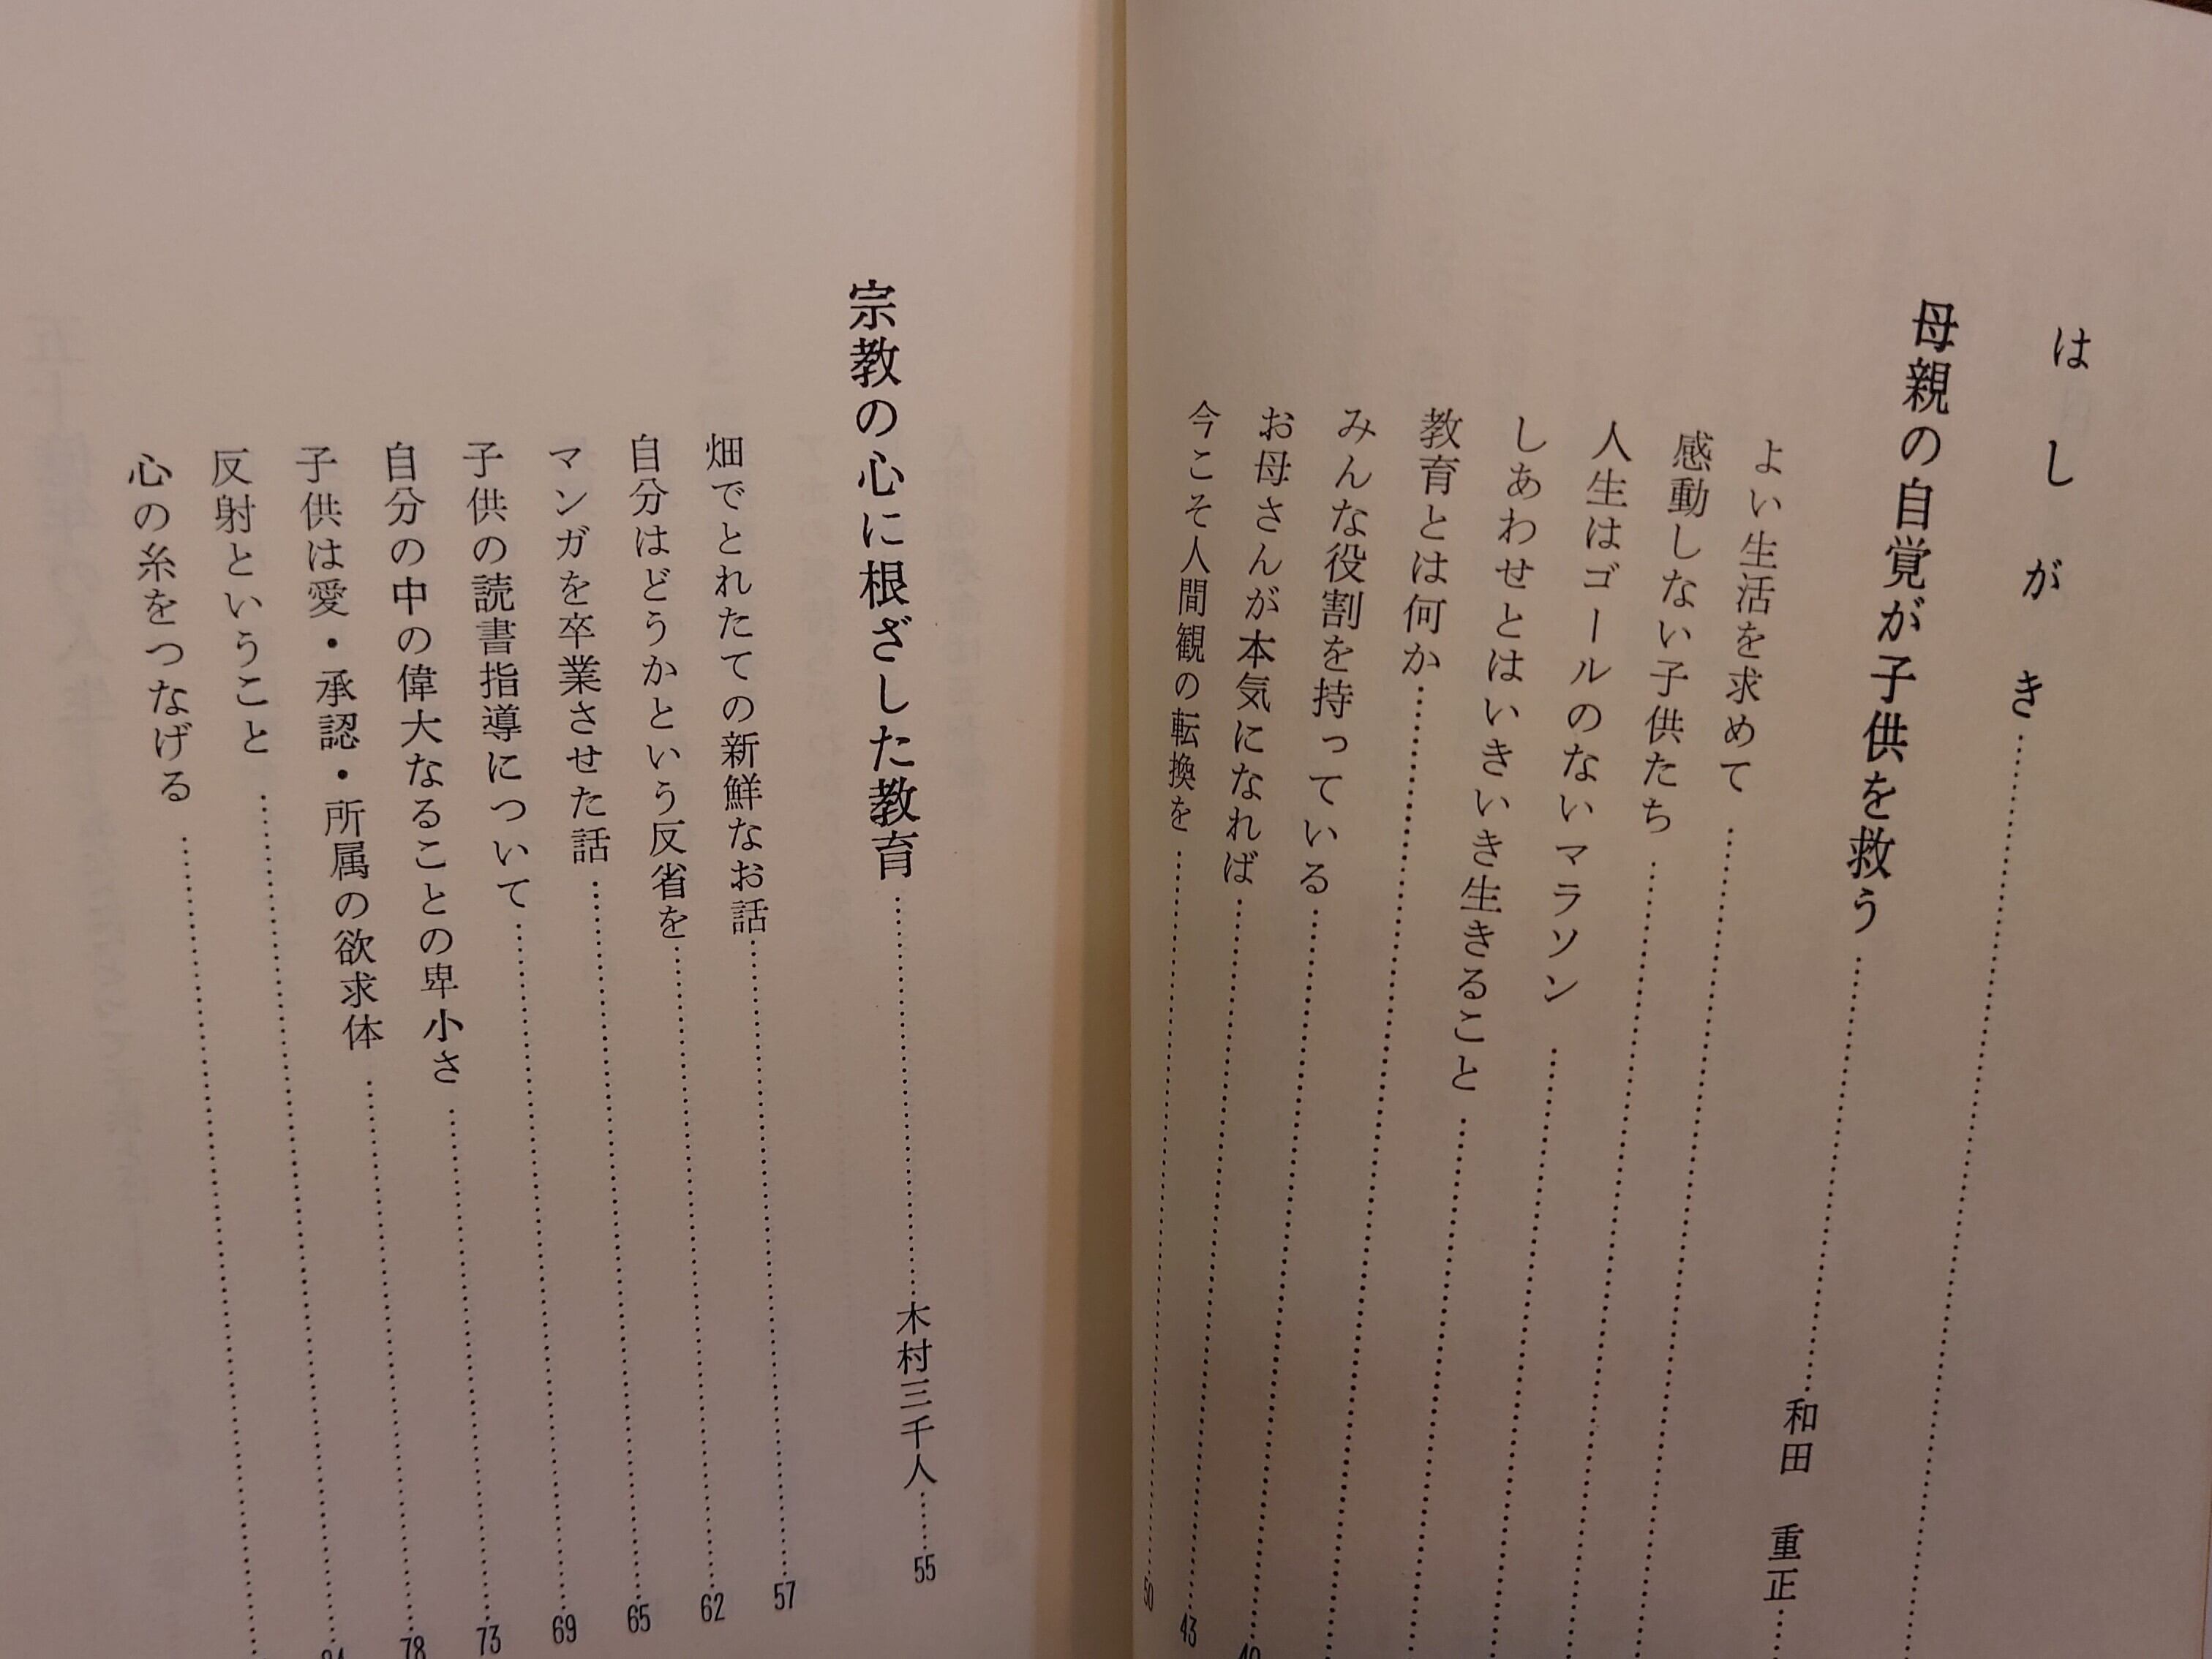 はしがき
母親の自覚が子供を救う……和田 重正
よい生活を求めて
感動しない子供たち
人生はゴールのないマラソン
しあわせとはいきいき生きること
教育とは何か
みんな役割を持っている
お母さんが本気になれば……43
今こそ人間観の転換を……50
宗教の心に根ざした教育……木村三千人……55
畑でとれたての新鮮なお話……57
自分はどうかという反省を……62
マンガを卒業させた話……65
子供の読書指導について……69
自分の中の偉大なることの卑小さ……73
子供は愛・承認・所属の欲求体……78
反射ということ
心の糸をつなげる